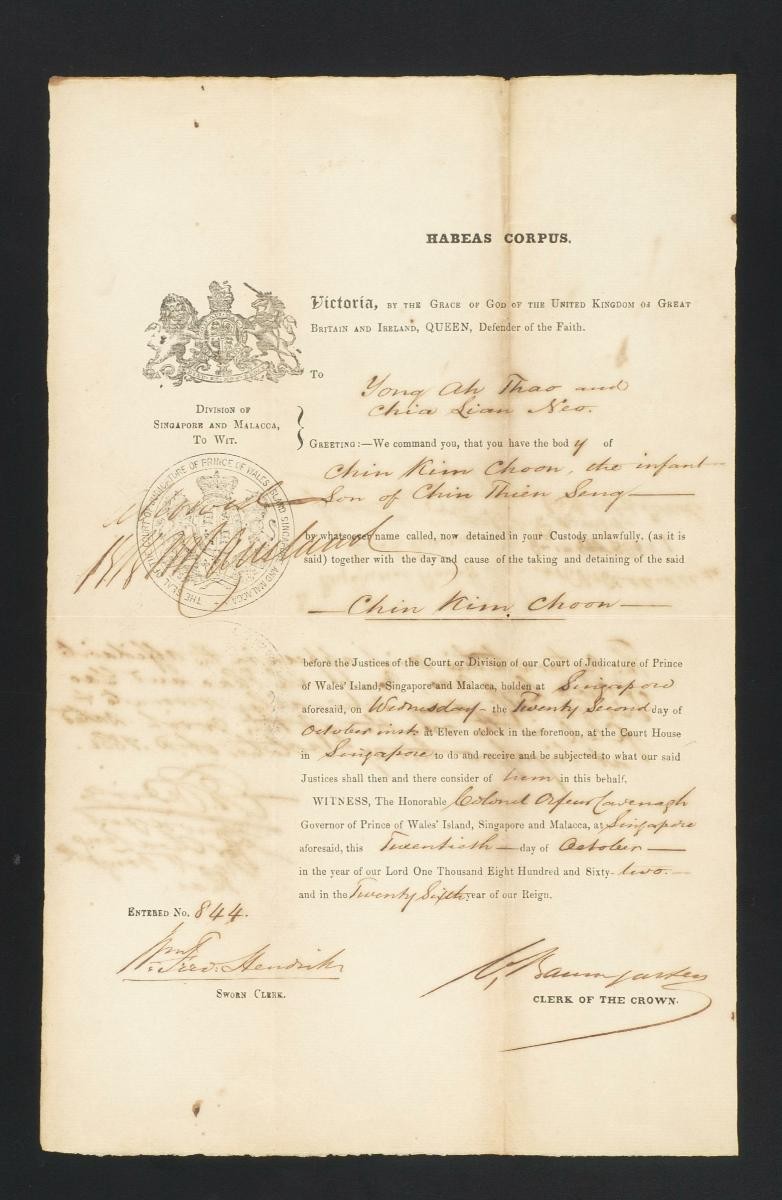 HABEAS CORPUS.
Victoria, BY THE GRACE OF GOD OF THE UNITED KINGDOM OF GREAT
BRITAIN AND IRELAND, QUEEN, Defender of the Faith.
To
Yong Ah Thao and
Chia Lian Neo.
DIVISION OF
SINGAPORE AND MALACCA,
TO WIT.
GREETING:—We command you, that you have the body of
Chin Kim Choon, the infant
Son of Chin Thien Seng—
THE SEAL OF THE COURT OF JUDICATURE OF PRINCE OF WALES' ISLAND SINGAPORE AND MALACCA
by whatsoever name called, now detained in your Custody unlawfully, (as it is
said) together with the day and cause of the taking and detaining of the said
—Chin Kim Choon—
before the Justices of the Court or Division of our Court of Judicature of Prince
of Wales' Island, Singapore and Malacca, holden at Singapore
aforesaid, on Wednesday—the Twenty Second day of
October inst at Eleven o'clock in the forenoon, at the Court House
in Singapore to do and receive and be subjected to what our said
Justices shall then and there consider of him in this behalf.
WITNESS, The Honorable Colonel Orfeur Cavenagh
Governor of Prince of Wales' Island, Singapore and Malacca, at Singapore
aforesaid, this Twentieth—day of October—
in the year of our Lord One Thousand Eight Hundred and Sixty-two.—
and in the Twenty Sixth year of our Reign.
ENTERED No. 844.
Fred. Hendriks
SWORN CLERK.
Baumgarten
CLERK OF THE CROWN.